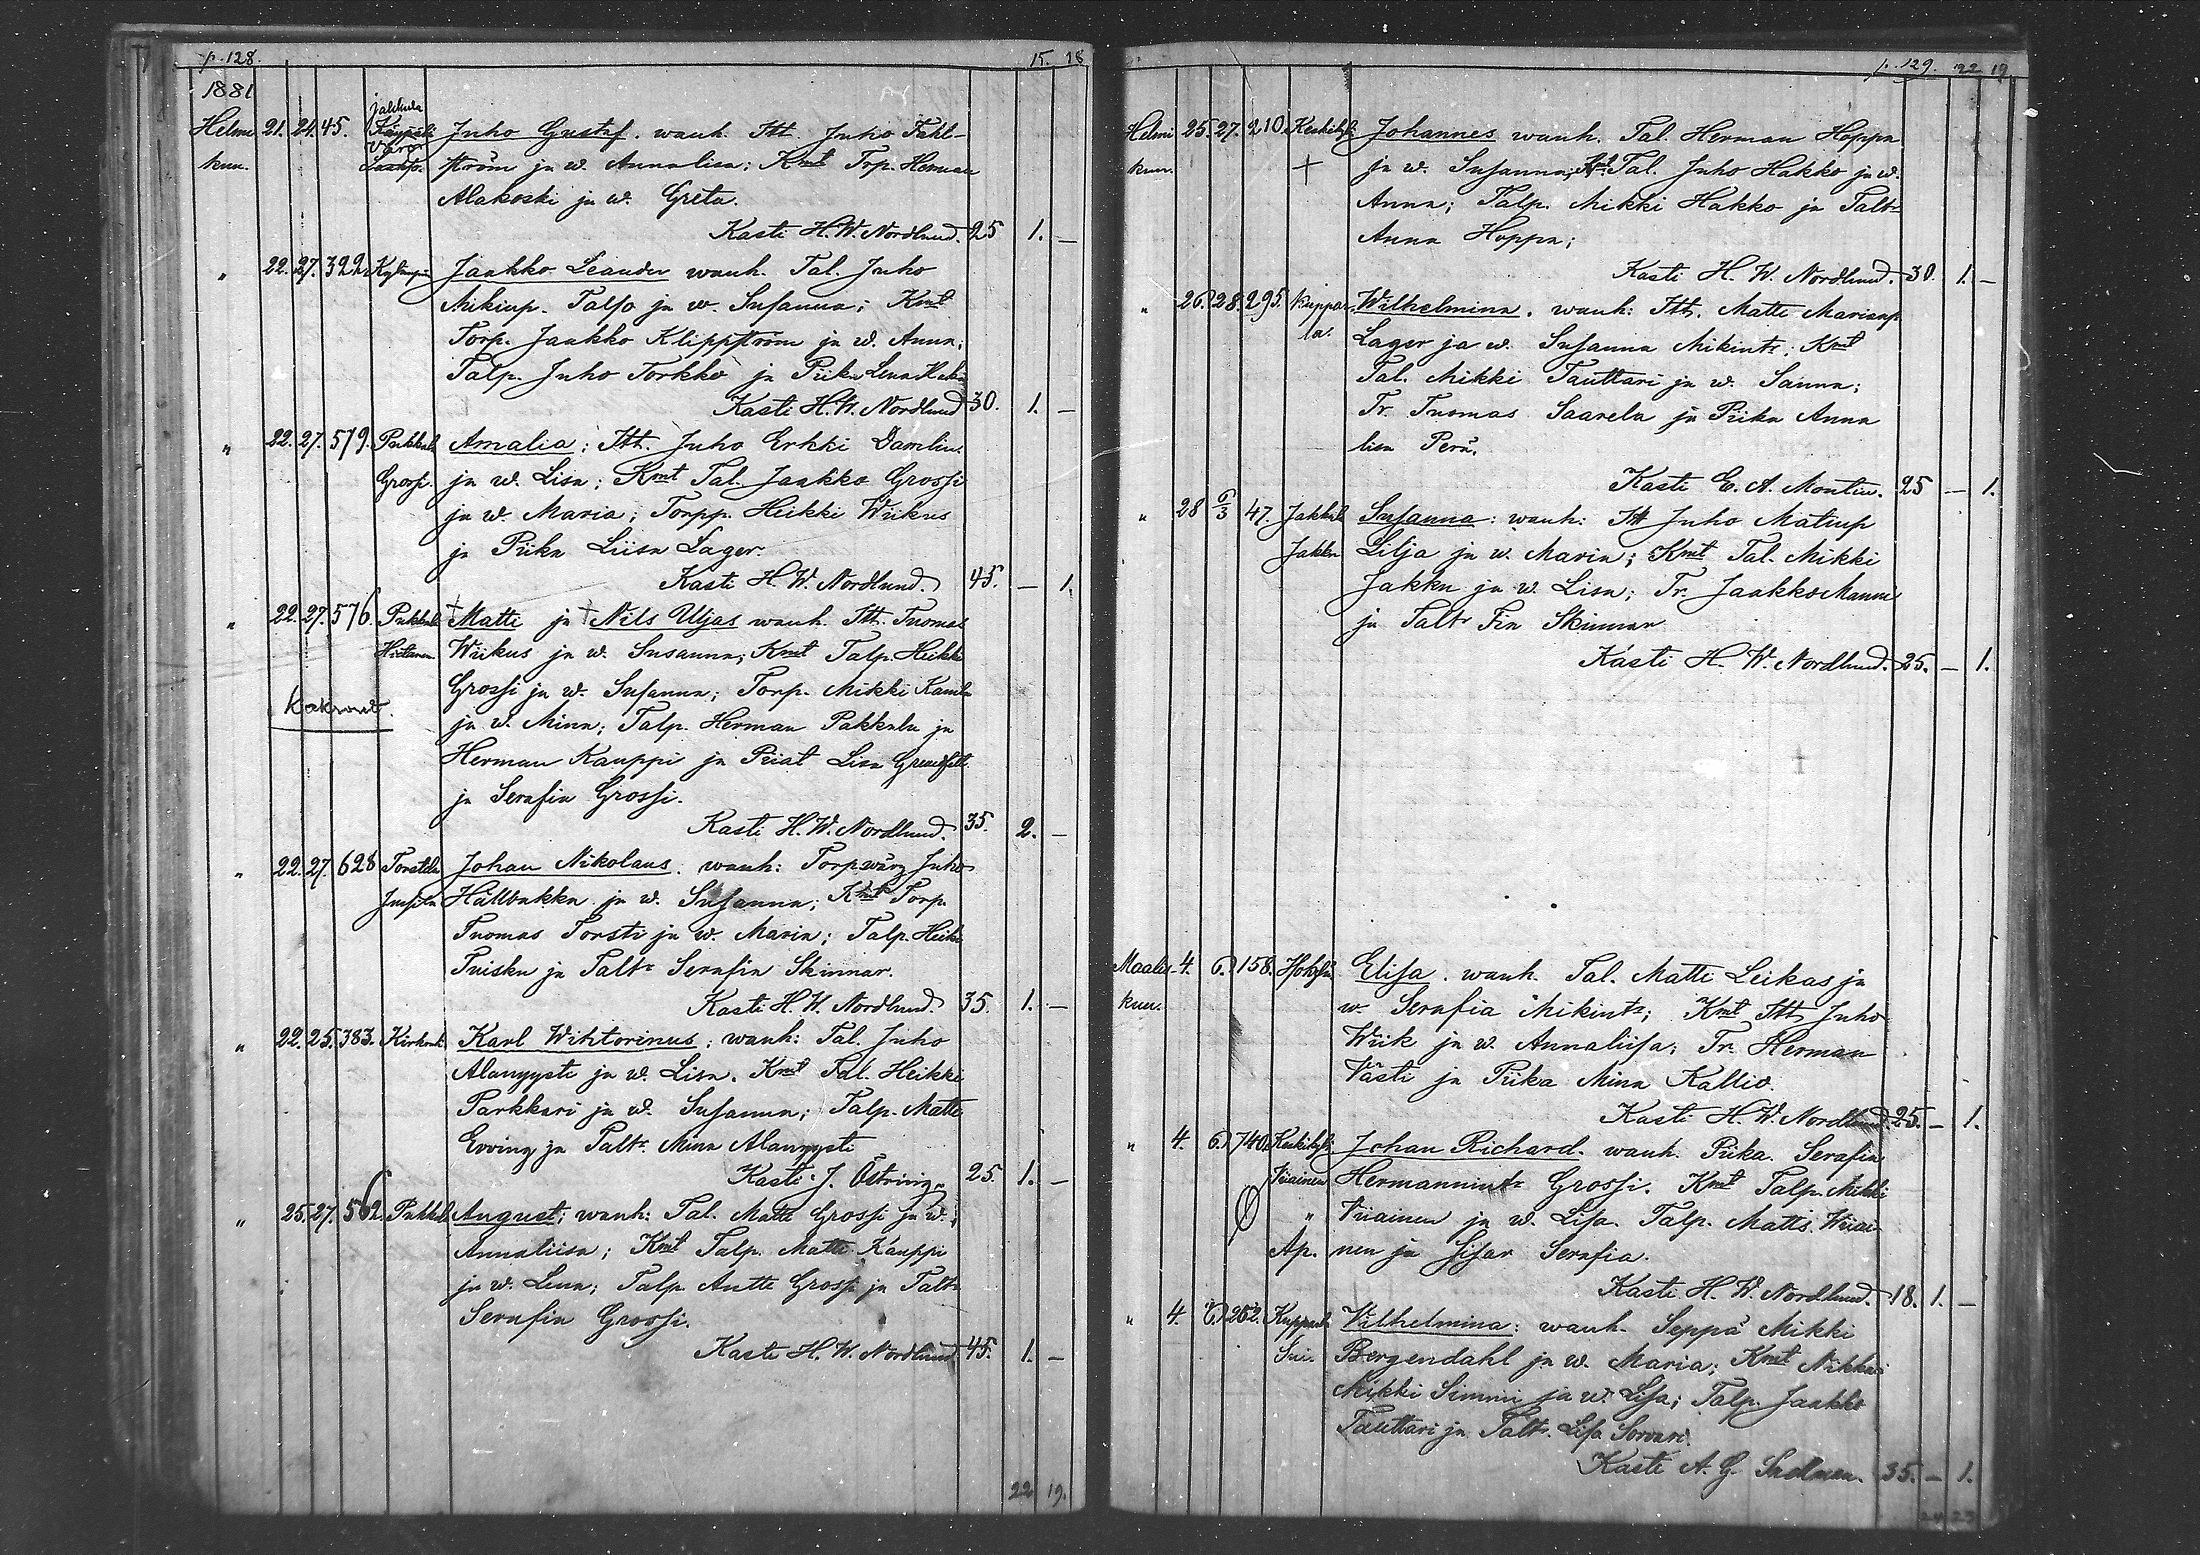 p. 128. 15. 18
1881
Helmi 21. 24. 45. Jakkula Juho Gustaf. wanh. Itt. Juho Fahl-
kun. ström ja w. Annalisa; Kmt Trp. Herman
Alakoski ja w. Greta.
Kasti H. W. Nordlund. 25 1. —
" 22. 27. 322. Jaakko Leander wanh. Tal. Juho
Mikinp. Talso ja w. Susanna; Kmt
Torp. Jaakko Klippström ja w. Anna;
Talp. Juho Torkko ja Piika Lena
Kasti H. W. Nordlund 30. 1. —
" 22. 27. 579. Pukkala Amalia; Itt. Juho Erkki Damlin
Grossi. ja w. Lisa; Kmt Tal. Jaakko Grossi
ja w. Maria; Torpp. Heikki Wiikus
ja Piika Liisa Lager.
Kasti H. W. Nordlund. 45. — 1.
" 22. 27. 576. Pukkala † Matti ja † Nils Uljas wanh. Itt. Tuomas
Wiikus ja w. Susanna; Kmt Talp. Heikki
Grossi ja w. Susanna; Torp. Mikki
Kaksoset. ja w. Minn; Talp. Herman Pakkala ja
Herman Kauppi ja Piiat Lisa
ja Serafia Grossi.
Kasti H. W. Nordlund. 35. 2. —
" 22. 27. 628 Torstila Johan Nikolaus. wanh: Torpwäg Juho
Jussila Hällbakka ja w. Susanna; Kmt Torp.
Tuomas Torsti ja w. Maria; Talp. Heikki
Tuisku ja Taltr Serafia Skinnar.
Kasti H. W. Nordlund. 35. 1. —
" 22. 25. 383. Karl Wiktorinus; wanh: Tal. Juho
Alanyysti ja w. Lisa. Kmt Tal. Heikki
Parkkari ja w. Susanna; Talp. Matti
Evving ja Taltr Minn Alanyysti
Kasti J. Östring. 25. 1. —
" 25. 27. 562. Pukkala August; wanh: Tal. Matti Grossi ja w.
Annaliisa; Kmt Talp. Matti Kauppi
ja w. Lena; Talp. Antti Grossi ja Taltr
Serafia Grossi.
Kasti H. W. Nordlund 45. 1. —
22 19.
p. 129. 22 19
Helmi 25. 27. 210. Keskikyl. Johannes wanh. Tal. Herman Hoppa
kun. + ja w. Susanna; Kmt Tal. Juho Hakko ja w.
Anna; Talp. Mikki Hakko ja Taltr
Anna Hoppa;
Kasti H. W. Nordlund. 30. 1. —
" 26. 28. 295. Kuppar- Wilhelmina. wanh: Itt. Matti Marianp
la. Lager ja w. Susanna Mikintr; Kmt
Tal. Mikki Tauttari ja w. Sanna;
Tr. Tuomas Saarela ja Piika Anna
lisa Perä.
Kasti E. A. Montin. 25 — 1.
" 28 6/3 47. Jakkula Susanna: wanh: Itt Juho Matinp
Jakku Lilja ja w. Maria; Kmt Tal. Mikki
Jakku ja w. Lisa; Tr. Jaakko
ja Taltr Fia Skinnar
Kasti H. W. Nordlund. 25. — 1.
Maalis- 4. 6. 158. Elisa. wanh. Tal. Matti Leikas ja
kuu. w. Serafia Mikintr; Kmt Itt Juho
Wiik ja w. Annaliisa; Tr. Herman
Västi ja Piika Mina Kallio.
Kasti H. W. Nordlund. 25. — 1.
" 4. 6. 740. Keskikyl. Johan Richard. wanh. Piika. Serafia
Viiainen Hermannintr Grossi. Kmt Talp. Mikki
" Viiainen ja w. Lisa. Talp. Matts. Wiiai-
Ap. nen ja sisar Serafia.
Kasti H. W. Nordlund. 18. 1. —
" 4. 6. 262. Kuppala Vilhelmina: wanh. Seppä Mikki
Bergendahl ja w. Maria; Kmt Nikkari
Mikki Simmi ja w. Lisa; Talp. Jaakko
Tauttari ja Taltr. Lisa Sorvari.
Kasti A. G. 35. — 1.